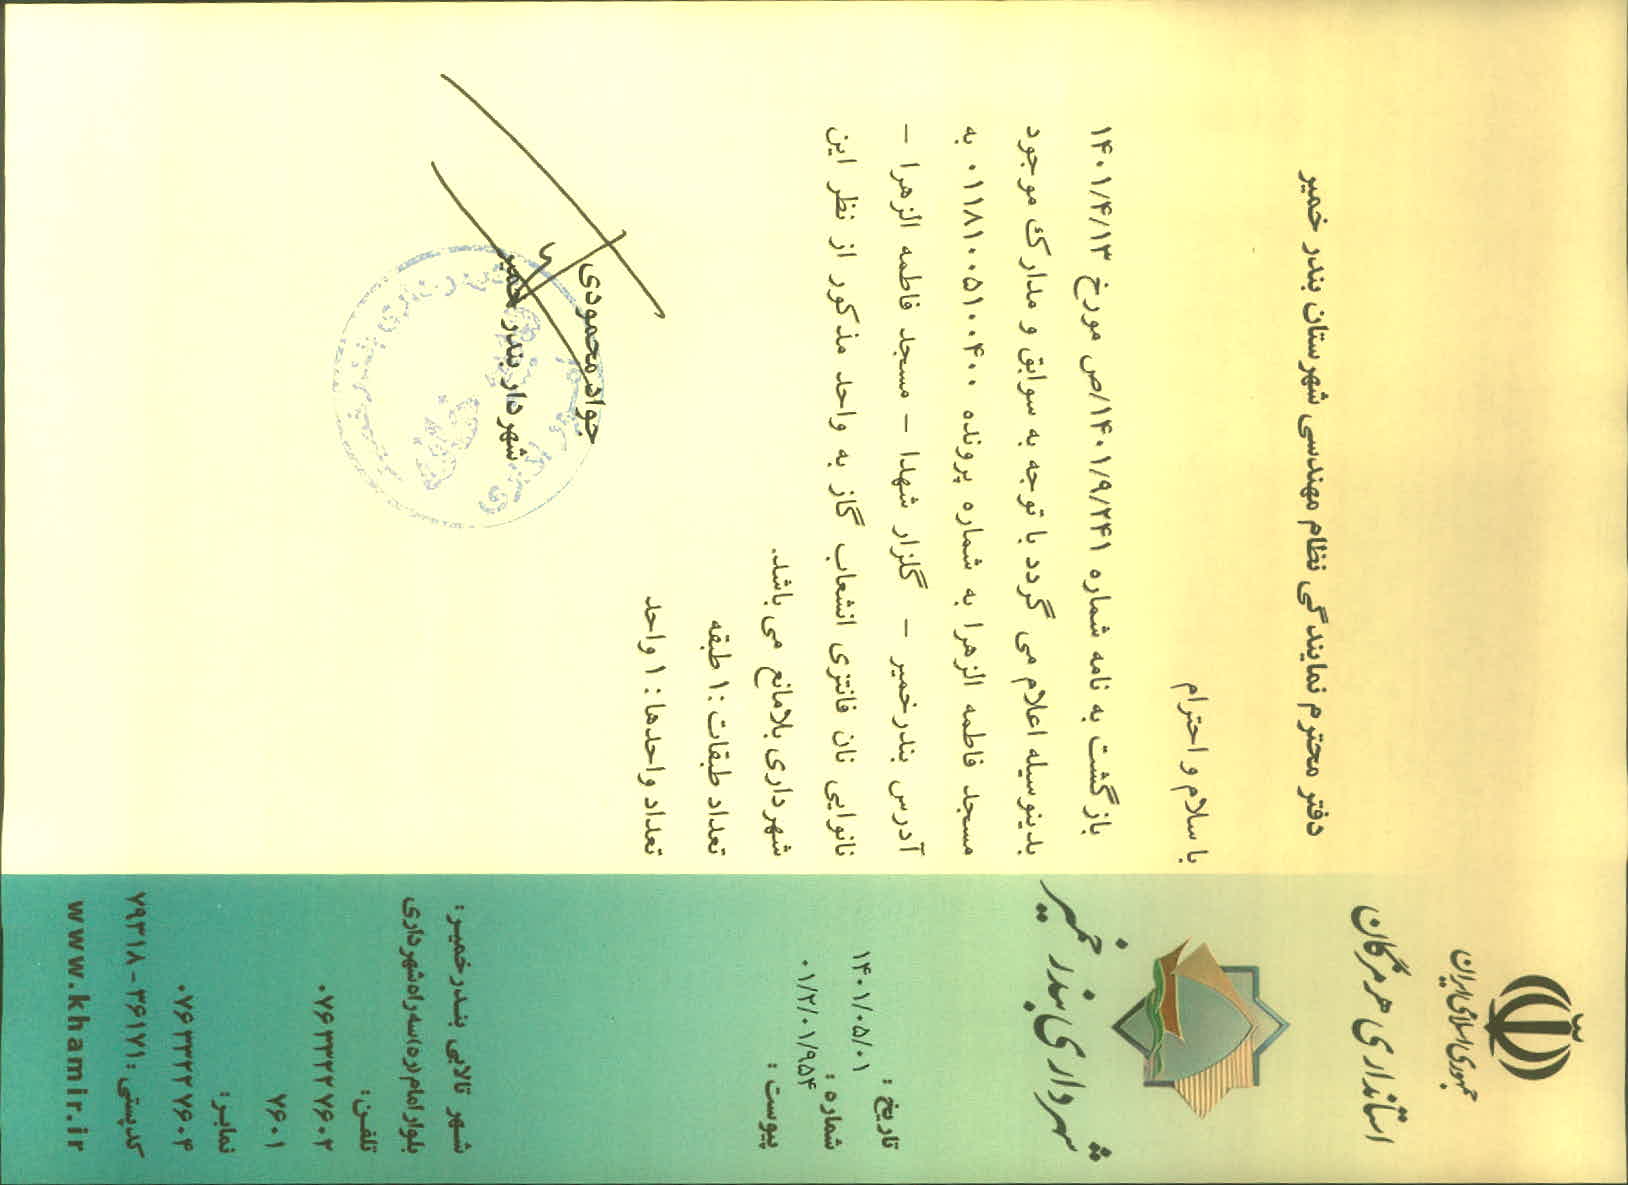 جمهوری اسلامی ایران
استانداری هرمزگان
شهرداری بندر خمیر
تاریخ : ۱۴۰۱/۰۵/۰۱
شماره : ۰۱/۲/۰۱/۹۵۴
پیوست :
دفتر محترم نمایندگی نظام مهندسی شهرستان بندر خمیر
با سلام و احترام
بازگشت به نامه شماره ۱۴۰۱/۹/۲۴۱/ص مورخ ۱۴۰۱/۴/۱۳
بدینوسیله اعلام می گردد با توجه به سوابق و مدارک موجود
مسجد فاطمه الزهرا به شماره پرونده ۰۱۱۸۱۰۰۵۱۰۰۴۰۰ به
آدرس بندرخمیر - گلزار شهدا - مسجد فاطمه الزهرا -
نانوایی نان فانتزی انشعاب گاز به واحد مذکور از نظر این
شهرداری بلامانع می باشد.
تعداد طبقات : ۱ طبقه
تعداد واحدها : ۱ واحد
جواد محمودی
شهردار بندر خمیر
شهر تالابی بندرخمیر:
بلوار امام(ره)سه راه شهرداری
تلفن:
۰۷۶۳۳۳۲۷۶۰۲
۷۶۰۱
نمابر:
۰۷۶۳۳۳۲۷۶۰۴
کدپستی : ۳۶۱۷۱ - ۷۹۳۱۸
www.khamir.ir